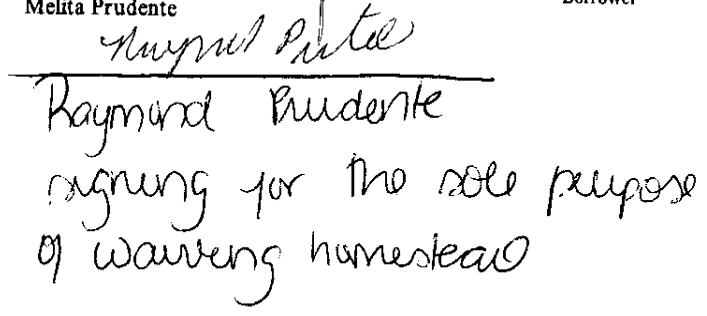 Melita Prudente Borrower
Raymond Prudente
signing for the sole purpose
of waiving homestead